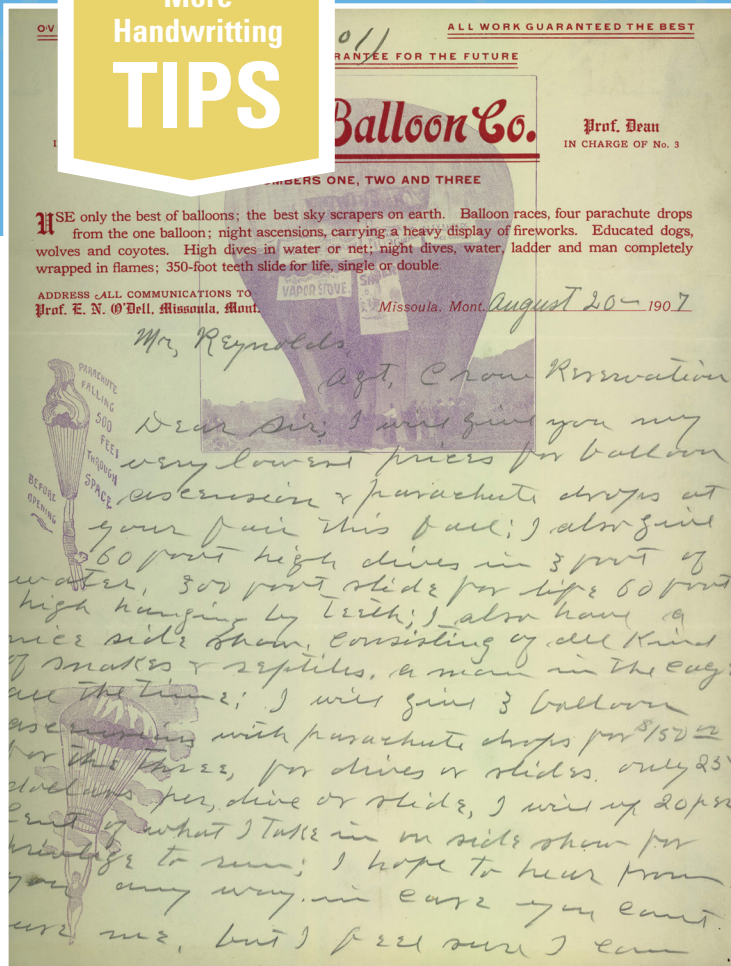 More
Handwritting
TIPS
O'V
ALL WORK GUARANTEED THE BEST
RANTEE FOR THE FUTURE
Balloon Co.
Prof. Dean
IN CHARGE OF No. 3
MBERS ONE, TWO AND THREE
USE only the best of balloons; the best sky scrapers on earth. Balloon races, four parachute drops
from the one balloon; night ascensions, carrying a heavy display of fireworks. Educated dogs,
wolves and coyotes. High dives in water or net; night dives, water, ladder and man completely
wrapped in flames; 350-foot teeth slide for life, single or double.
VAPOR STOVE.
ADDRESS ALL COMMUNICATIONS TO
Prof. E. N. O'Dell, Missoula, Mont.
Missoula, Mont. August 20 — 1907
Mr, Reynolds,
Agt, Crow Reservation
PARACHUTE
FALLING
500
FEET
THROUGH
SPACE
BEFORE
OPENING
Dear Sir; I will give you my
very lowest prices for balloon
ascension & parachute drops at
your fair this fall; I also give
60 foot high dives in 3 foot of
water, 300 foot slide for life 60 foot
high hanging by teeth; I also have a
nice side show, consisting of all kind
of snakes & reptiles, a man in the cage
all the time; I will give 3 balloon
ascensions with parachute drops for $150 00
for the three, for dives or slides, only 25
dollars per, dive or slide, I will 20 per
cent of what I take in on side show for
privilege to run; I hope to hear from
you any way in case you cant
use me, but I feel sure I can